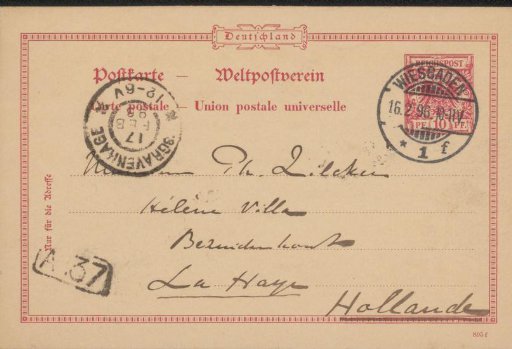 Deutschland
Postkarte — Weltpostverein
Carte postale — Union postale universelle
REICHSPOST
10 PF 10
WIESBADEN
16.2.96
* 1 f
'SGRAVENHAGE
17
FEB
96
12-6V
Nur für die Adresse
Monsieur Ph. Zilcken
Hélène Villa
Bezuidenhout
La Haye
Hollande
A.37